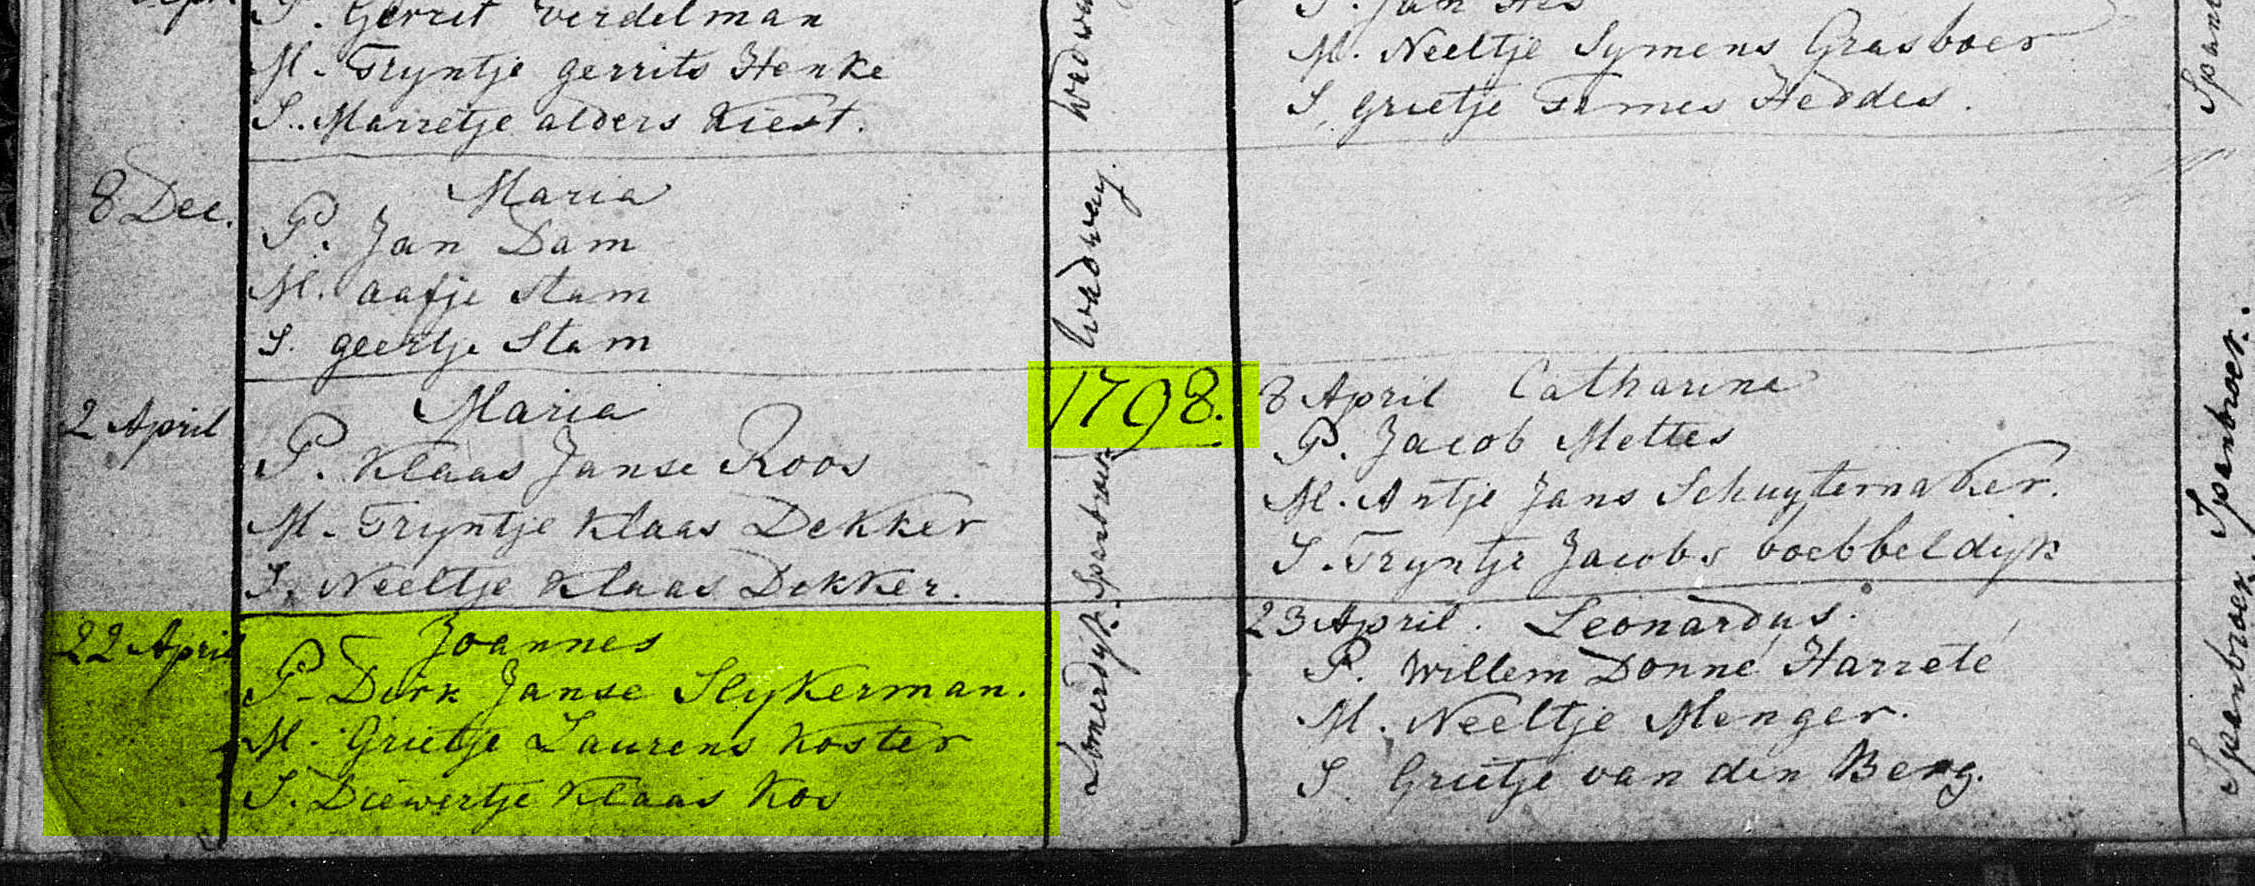 P. Gerret Verdelman
M. Tryntje gerrits Henke
S. Marretje alders Kiest.
8 Dec.
Maria
P. Jan Dam
M. aafje Stam
S. geertje Stam
2 April
Maria
P. Klaas Janse Roos
M. Tryntje Klaas Dekker
S. Neeltje Klaas Dekker.
22 April
Joannes
P. Dirk Janse Slykerman.
M. Grietje Laurens Koster
S. Diewertje Klaas Kos
Wadway.
1798.
Spanbroek
P. Jan Hes
M. Neeltje Symens Grasboer
S. grietje Tames Heddes.
8 April Catharina
P. Jacob Mettes
M. Antje Jans Schuytemaker.
S. Tryntje Jacobs boebbeldijk
23 April. Leonardus.
P. Willem Donné Harreté
M. Neeltje Menger.
S. Grietje van den Berg.
Spanbroek.
Spanbroek